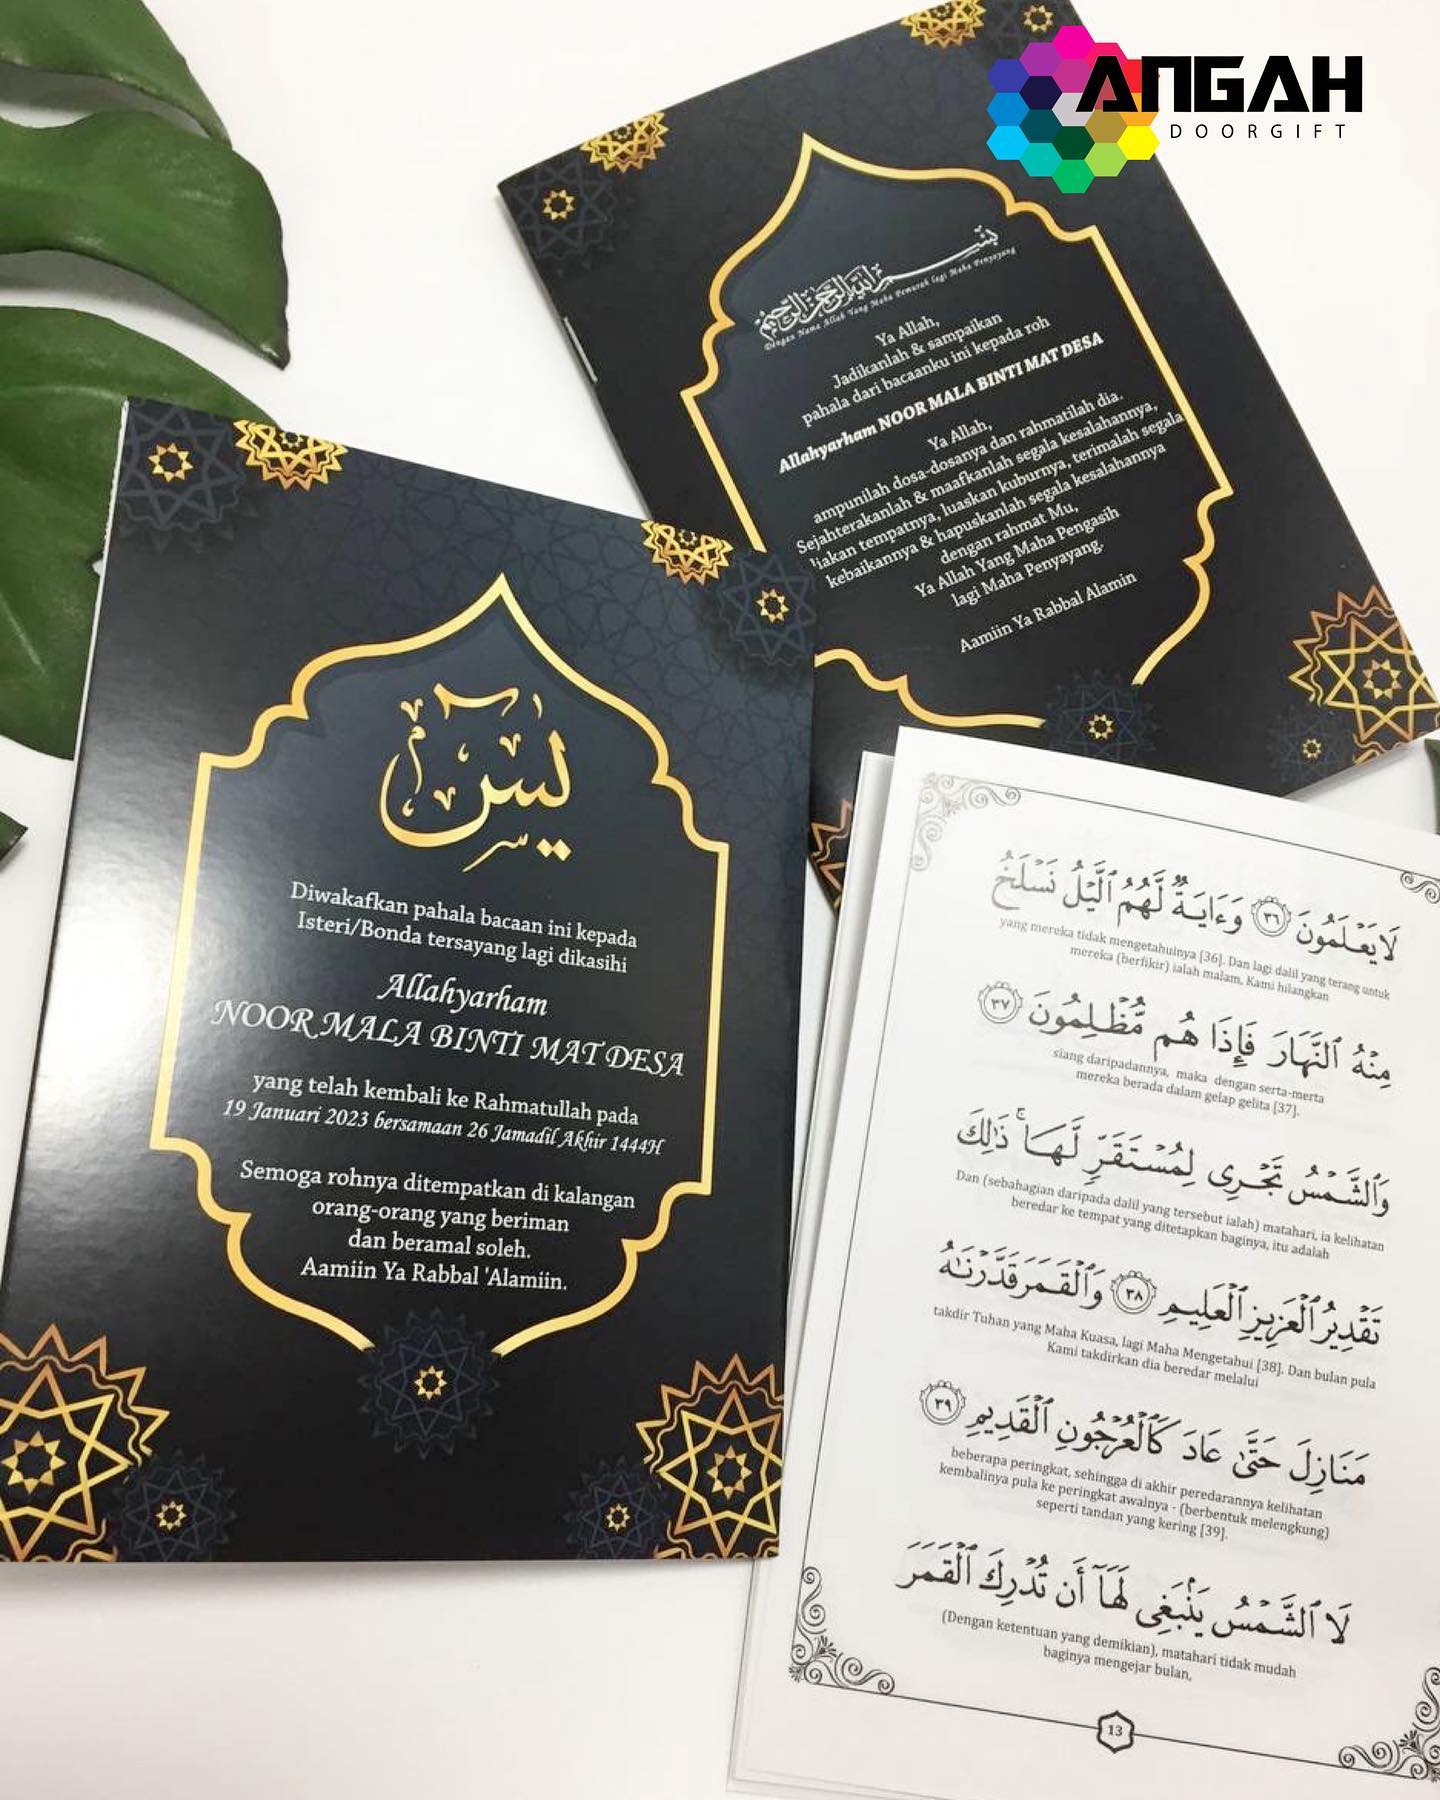 ANGAH
DOORGIFT
بِسْمِ اللَّهِ الرَّحْمَٰنِ الرَّحِيمِ
Dengan Nama Allah Yang Maha Pemurah lagi Maha Penyayang
Ya Allah,
Jadikanlah & sampaikan
pahala dari bacaanku ini kepada roh
Allahyarham NOOR MALA BINTI MAT DESA
Ya Allah,
ampunilah dosa-dosanya dan rahmatilah dia.
Sejahterakanlah & maafkanlah segala kesalahannya,
tempatnya, luaskan kuburnya, terimalah segala
kebaikannya & hapuskanlah segala kesalahannya
dengan rahmat Mu,
Ya Allah Yang Maha Pengasih
lagi Maha Penyayang.
Aamiin Ya Rabbal Alamin
يس
Diwakafkan pahala bacaan ini kepada
Isteri/Bonda tersayang lagi dikasihi
Allahyarham
NOOR MALA BINTI MAT DESA
yang telah kembali ke Rahmatullah pada
19 Januari 2023 bersamaan 26 Jamadil Akhir 1444H
Semoga rohnya ditempatkan di kalangan
orang-orang yang beriman
dan beramal soleh.
Aamiin Ya Rabbal 'Alamiin.
لَا يَعْلَمُونَ ٣٦ وَءَايَةٌ لَّهُمُ ٱلَّيْلُ نَسْلَخُ
yang mereka tidak mengetahuinya [36]. Dan lagi dalil yang terang untuk
mereka (berfikir) ialah malam, Kami hilangkan
مِنْهُ ٱلنَّهَارَ فَإِذَا هُم مُّظْلِمُونَ ٣٧
siang daripadannya, maka dengan serta-merta
mereka berada dalam gelap gelita [37].
وَٱلشَّمْسُ تَجْرِى لِمُسْتَقَرٍّ لَّهَا ۚ ذَٰلِكَ
Dan (sebahagian daripada dalil yang tersebut ialah) matahari, ia kelihatan
beredar ke tempat yang ditetapkan baginya, itu adalah
تَقْدِيرُ ٱلْعَزِيزِ ٱلْعَلِيمِ ٣٨ وَٱلْقَمَرَ قَدَّرْنَٰهُ
takdir Tuhan yang Maha Kuasa, lagi Maha Mengetahui [38]. Dan bulan pula
Kami takdirkan dia beredar melalui
مَنَازِلَ حَتَّىٰ عَادَ كَٱلْعُرْجُونِ ٱلْقَدِيمِ ٣٩
beberapa peringkat, sehingga di akhir peredarannya kelihatan
kembalinya pula ke peringkat awalnya - (berbentuk melengkung)
seperti tandan yang kering [39].
لَا ٱلشَّمْسُ يَنۢبَغِى لَهَآ أَن تُدْرِكَ ٱلْقَمَرَ
(Dengan ketentuan yang demikian), matahari tidak mudah
baginya mengejar bulan,
13